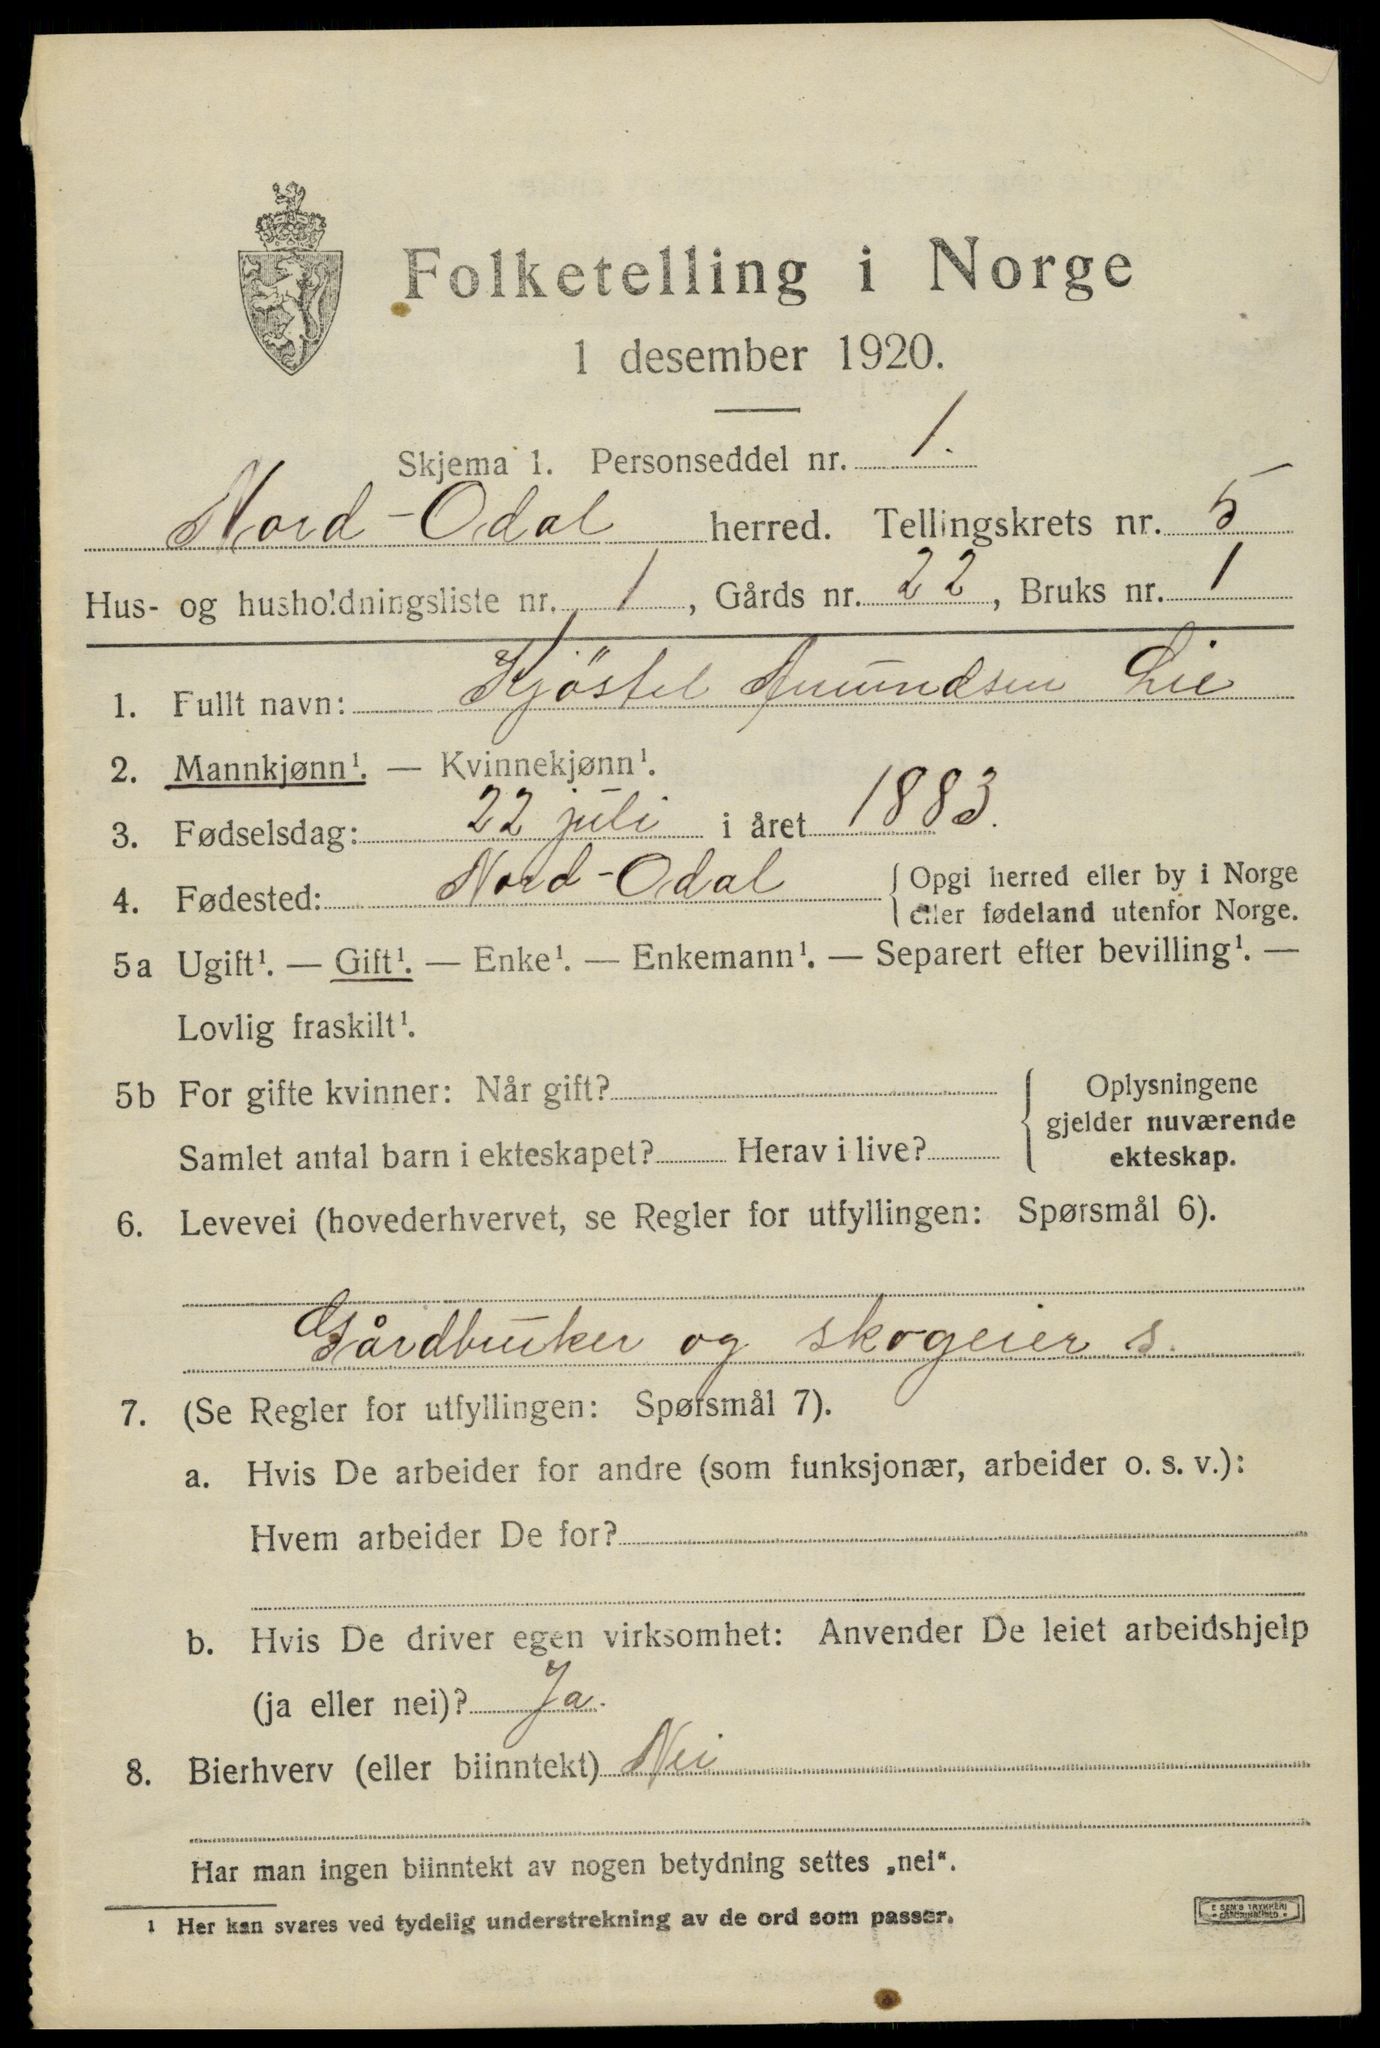 Folketelling i Norge
1 desember 1920.
Skjema 1. Personseddel nr. 1.
Nord-Odal herred. Tellingskrets nr. 5
Hus- og husholdningsliste nr. 1, Gårds nr. 22, Bruks nr. 1
1. Fullt navn: Kjöstel Amundsen Lie
2. Mannkjønn¹. — Kvinnekjønn¹.
3. Fødselsdag: 22 juli i året 1883.
4. Fødested: Nord-Odal { Opgi herred eller by i Norge
eller fødeland utenfor Norge.
5a Ugift¹. — Gift¹. — Enke¹. — Enkemann¹. — Separert efter bevilling¹. —
Lovlig fraskilt¹.
5b For gifte kvinner: Når gift? { Oplysningene
gjelder nuværende
Samlet antal barn i ekteskapet? Herav i live? ekteskap.
6. Levevei (hovederhvervet, se Regler for utfyllingen: Spørsmål 6).
Gårdbruker og skogeier s.
7. (Se Regler for utfyllingen: Spørsmål 7).
a. Hvis De arbeider for andre (som funksjonær, arbeider o. s. v.):
Hvem arbeider De for?
b. Hvis De driver egen virksomhet: Anvender De leiet arbeidshjelp
(ja eller nei)? Ja.
8. Bierhverv (eller biinntekt) Nei
Har man ingen biinntekt av nogen betydning settes „nei“.
1 Her kan svares ved tydelig understrekning av de ord som passer.